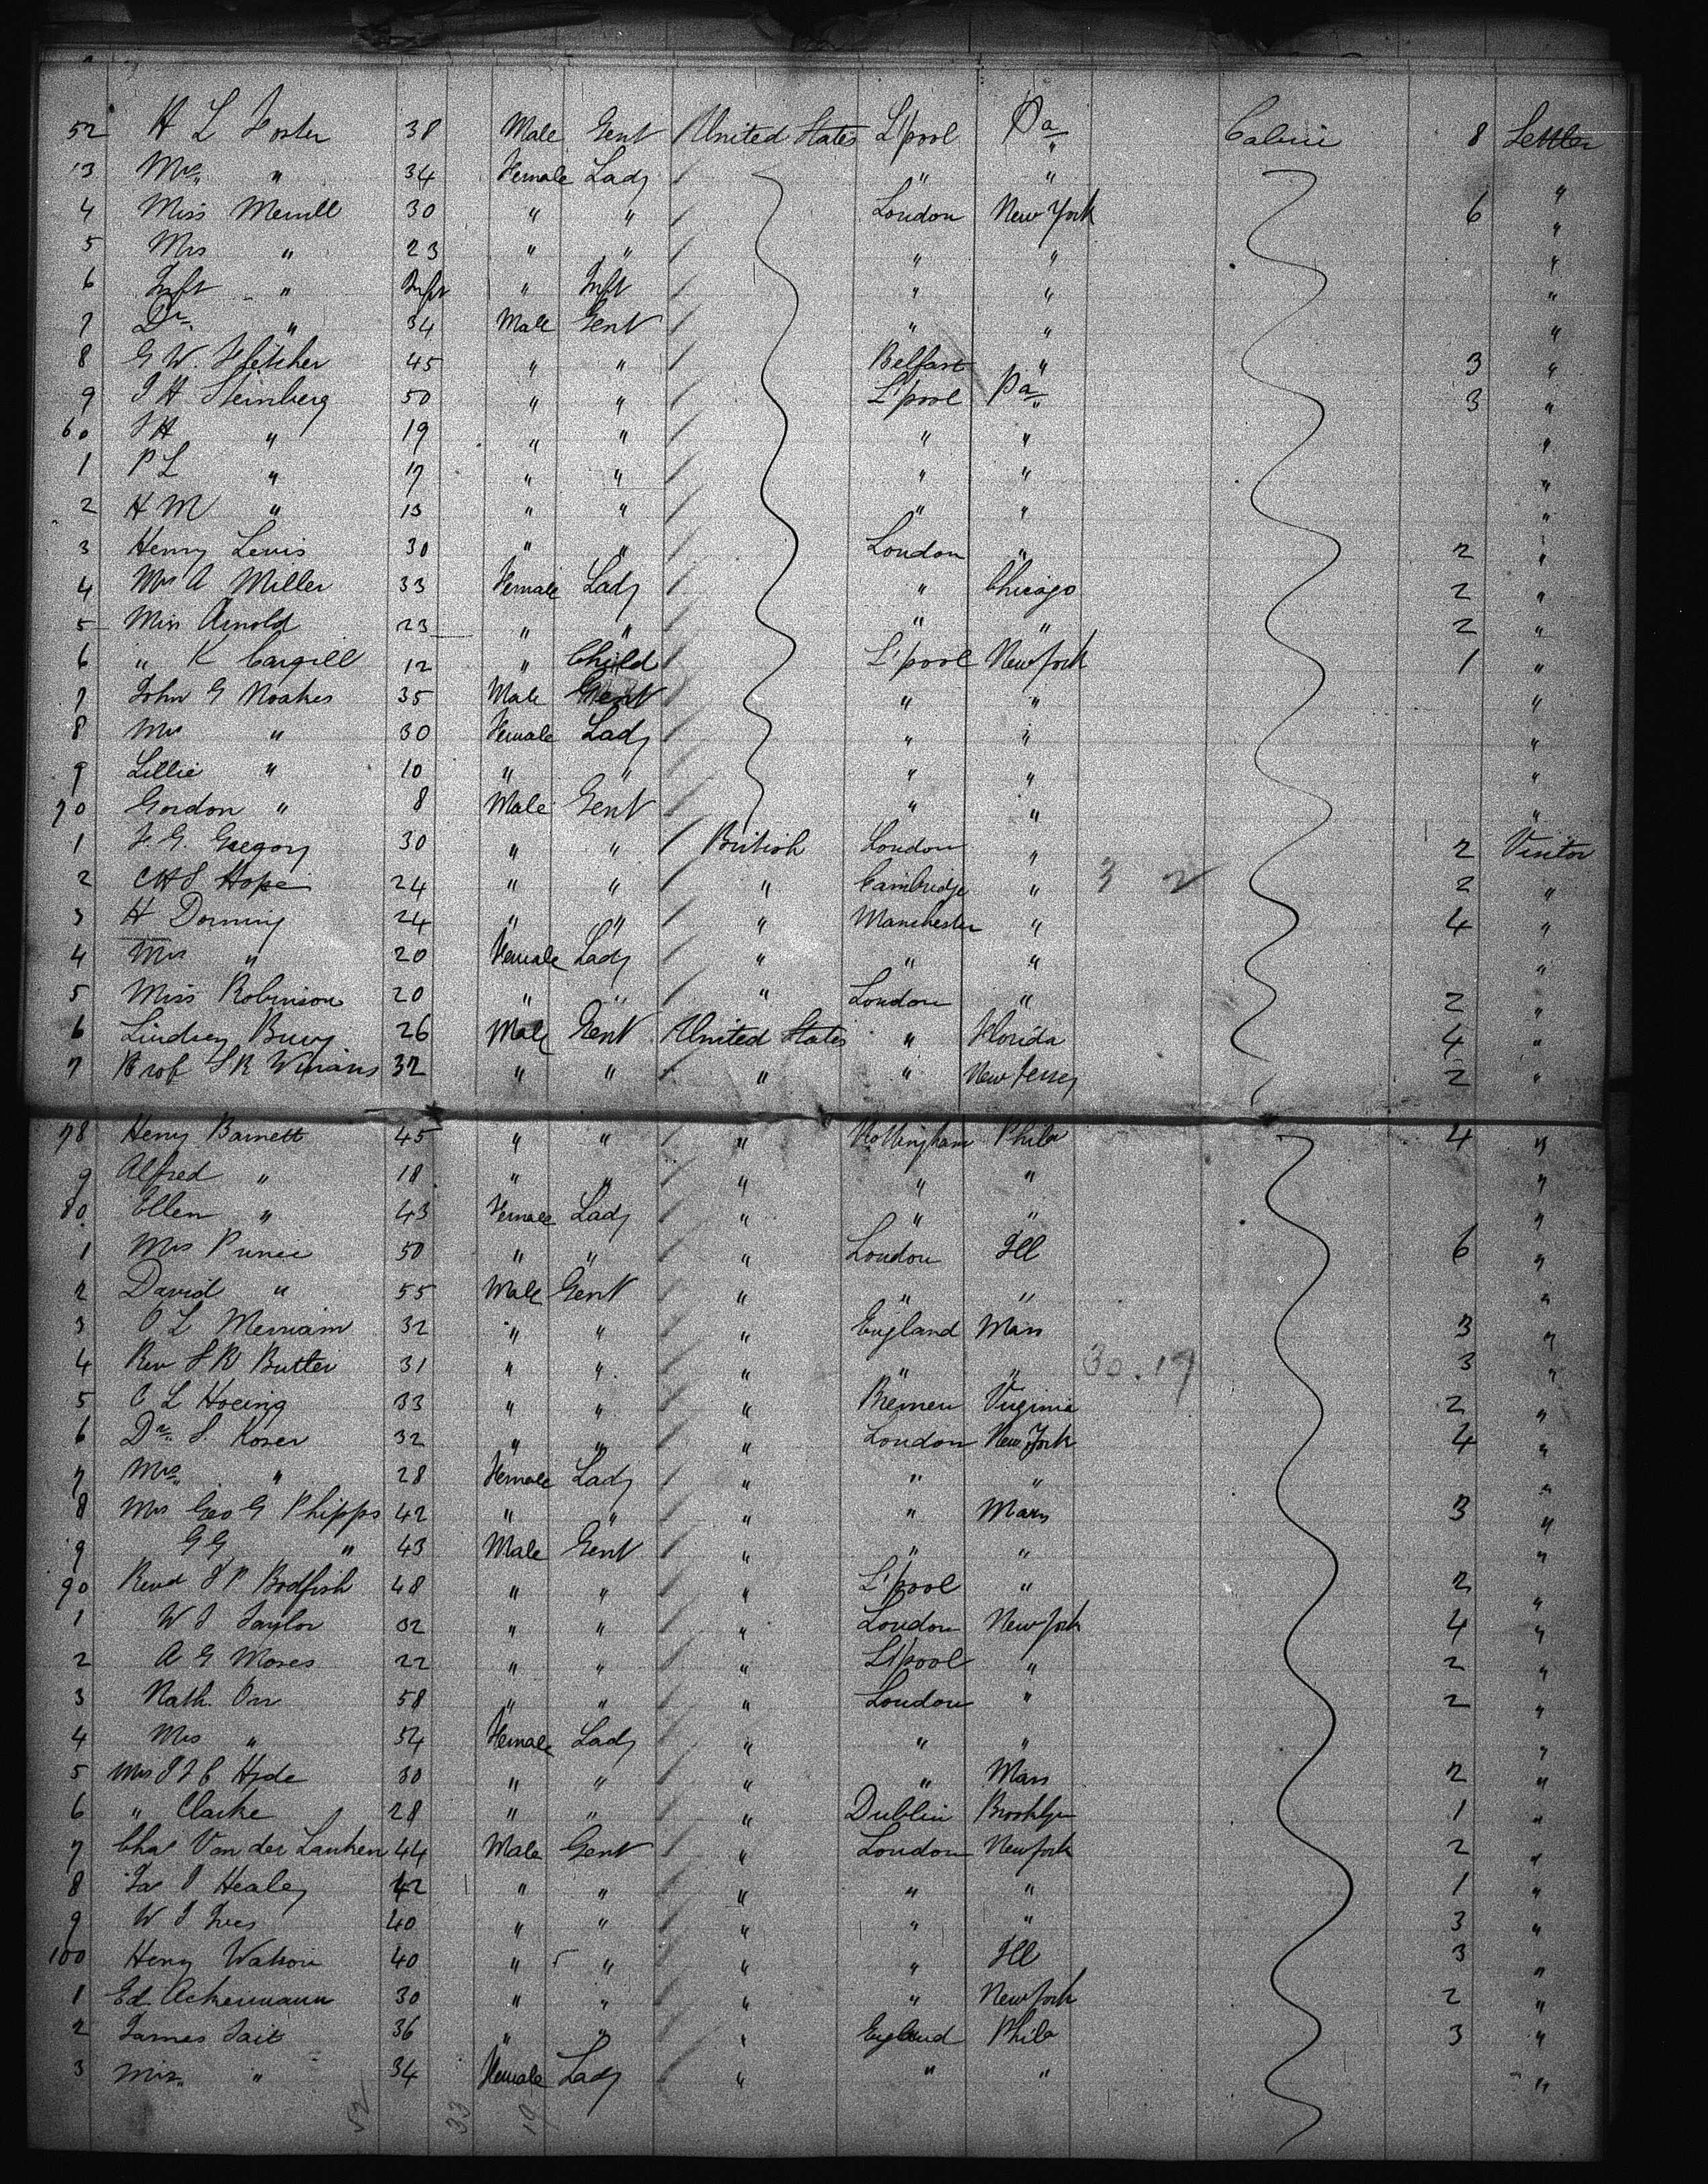 52 H L Foster 38 Male Gent / United States L'pool Pa Cabin 8 Settler
53 Mrs " 34 Female Lady / " " "
4 Miss Merrill 30 " " / London New York 6 "
5 Mrs " 23 " " / " " "
6 Inft " Inft " Inft / " " "
7 Dr. " 34 Male Gent / " " "
8 G W. Fletcher 45 " " / Belfast " 3 "
9 J H Steinberg 50 " " / L'pool Pa 3 "
60 J H " 19 " " / " " "
1 P L " 17 " " / " " "
2 H M " 13 " " / " " "
3 Henry Levis 30 " " / London " 2 "
4 Mrs A Miller 33 Female Lady / " Chicago 2 "
5 Miss Arnold 23 " " / " " 2 "
6 " K Cargill 12 " Child / L'pool New York 1 "
7 John G Noakes 35 Male Gent / " " "
8 Mrs " 30 Female Lady / " " "
9 Lillie " 10 " " / " " "
70 Gordon " 8 Male Gent / " " "
1 F. G. Gregory 30 " " / British London " 2 Visitor
2 C H S Hope 24 " " / " Cambridge " 3 2 2 "
3 H Dorning 24 " " / " Manchester " 4 "
4 Mrs " 20 Female Lady / " " " "
5 Miss Robinson 20 " " / " London " 2 "
6 Lindsey 26 Male Gent / United States " Florida 4 "
7 Prof S R Winans 32 " " / " " New Jersey 2 "
78 Henry Barnett 45 " " / " Nottingham Phila 4 "
9 Alfred " 18 " " / " " " "
80 Ellen " 43 Female Lady / " " " "
1 Mrs Prince 50 " " / " London Ill 6 "
2 David " 55 Male Gent / " " " "
3 O L Merriam 32 " " / " England Mass 3 "
4 Rev Butler 31 " " / " " " 30.17 3 "
5 C L Hoeing 33 " " / " Bremen Virginia 2 "
6 Dr. S. Koser 32 " " / " London New York 4 "
7 Mrs " 28 Female Lady / " " " "
8 Mrs Geo G Phipps 42 " " / " " Mass 3 "
9 G G " 43 Male Gent / " " " "
90 Revd J P Bodfish 48 " " / " L'pool " 2 "
1 W J Taylor 32 " " / " London New York 4 "
2 A G Moses 22 " " / " L'pool " 2 "
3 Nath. Orr 58 " " / " London " 2 "
4 Mrs " 54 Female Lady / " " " "
5 Mrs Hyde 30 " " / " " Mass 2 "
6 " Clarke 28 " " / " Dublin Brooklyn 1 "
7 Chas Van der Lanken 44 Male Gent / " London New York 2 "
8 Jas J Healey 42 " " / " " " 1 "
9 W J Ives 40 " " / " " " 3 "
100 Henry Watson 40 " " / " " Ill 3 "
1 Ed Ackermann 30 " " / " " New York 2 "
2 James Tait 36 " " / " England Phila 3 "
3 Mrs " 34 Female Lady / " " " "
52 33 19